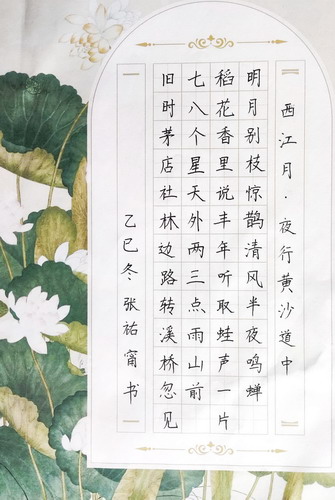 西江月·夜行黄沙道中
明月别枝惊鹊清风半夜鸣蝉
稻花香里说丰年听取蛙声一片
七八个星天外两三点雨山前
旧时茅店社林边路转溪桥忽见
乙巳冬张祐甯书